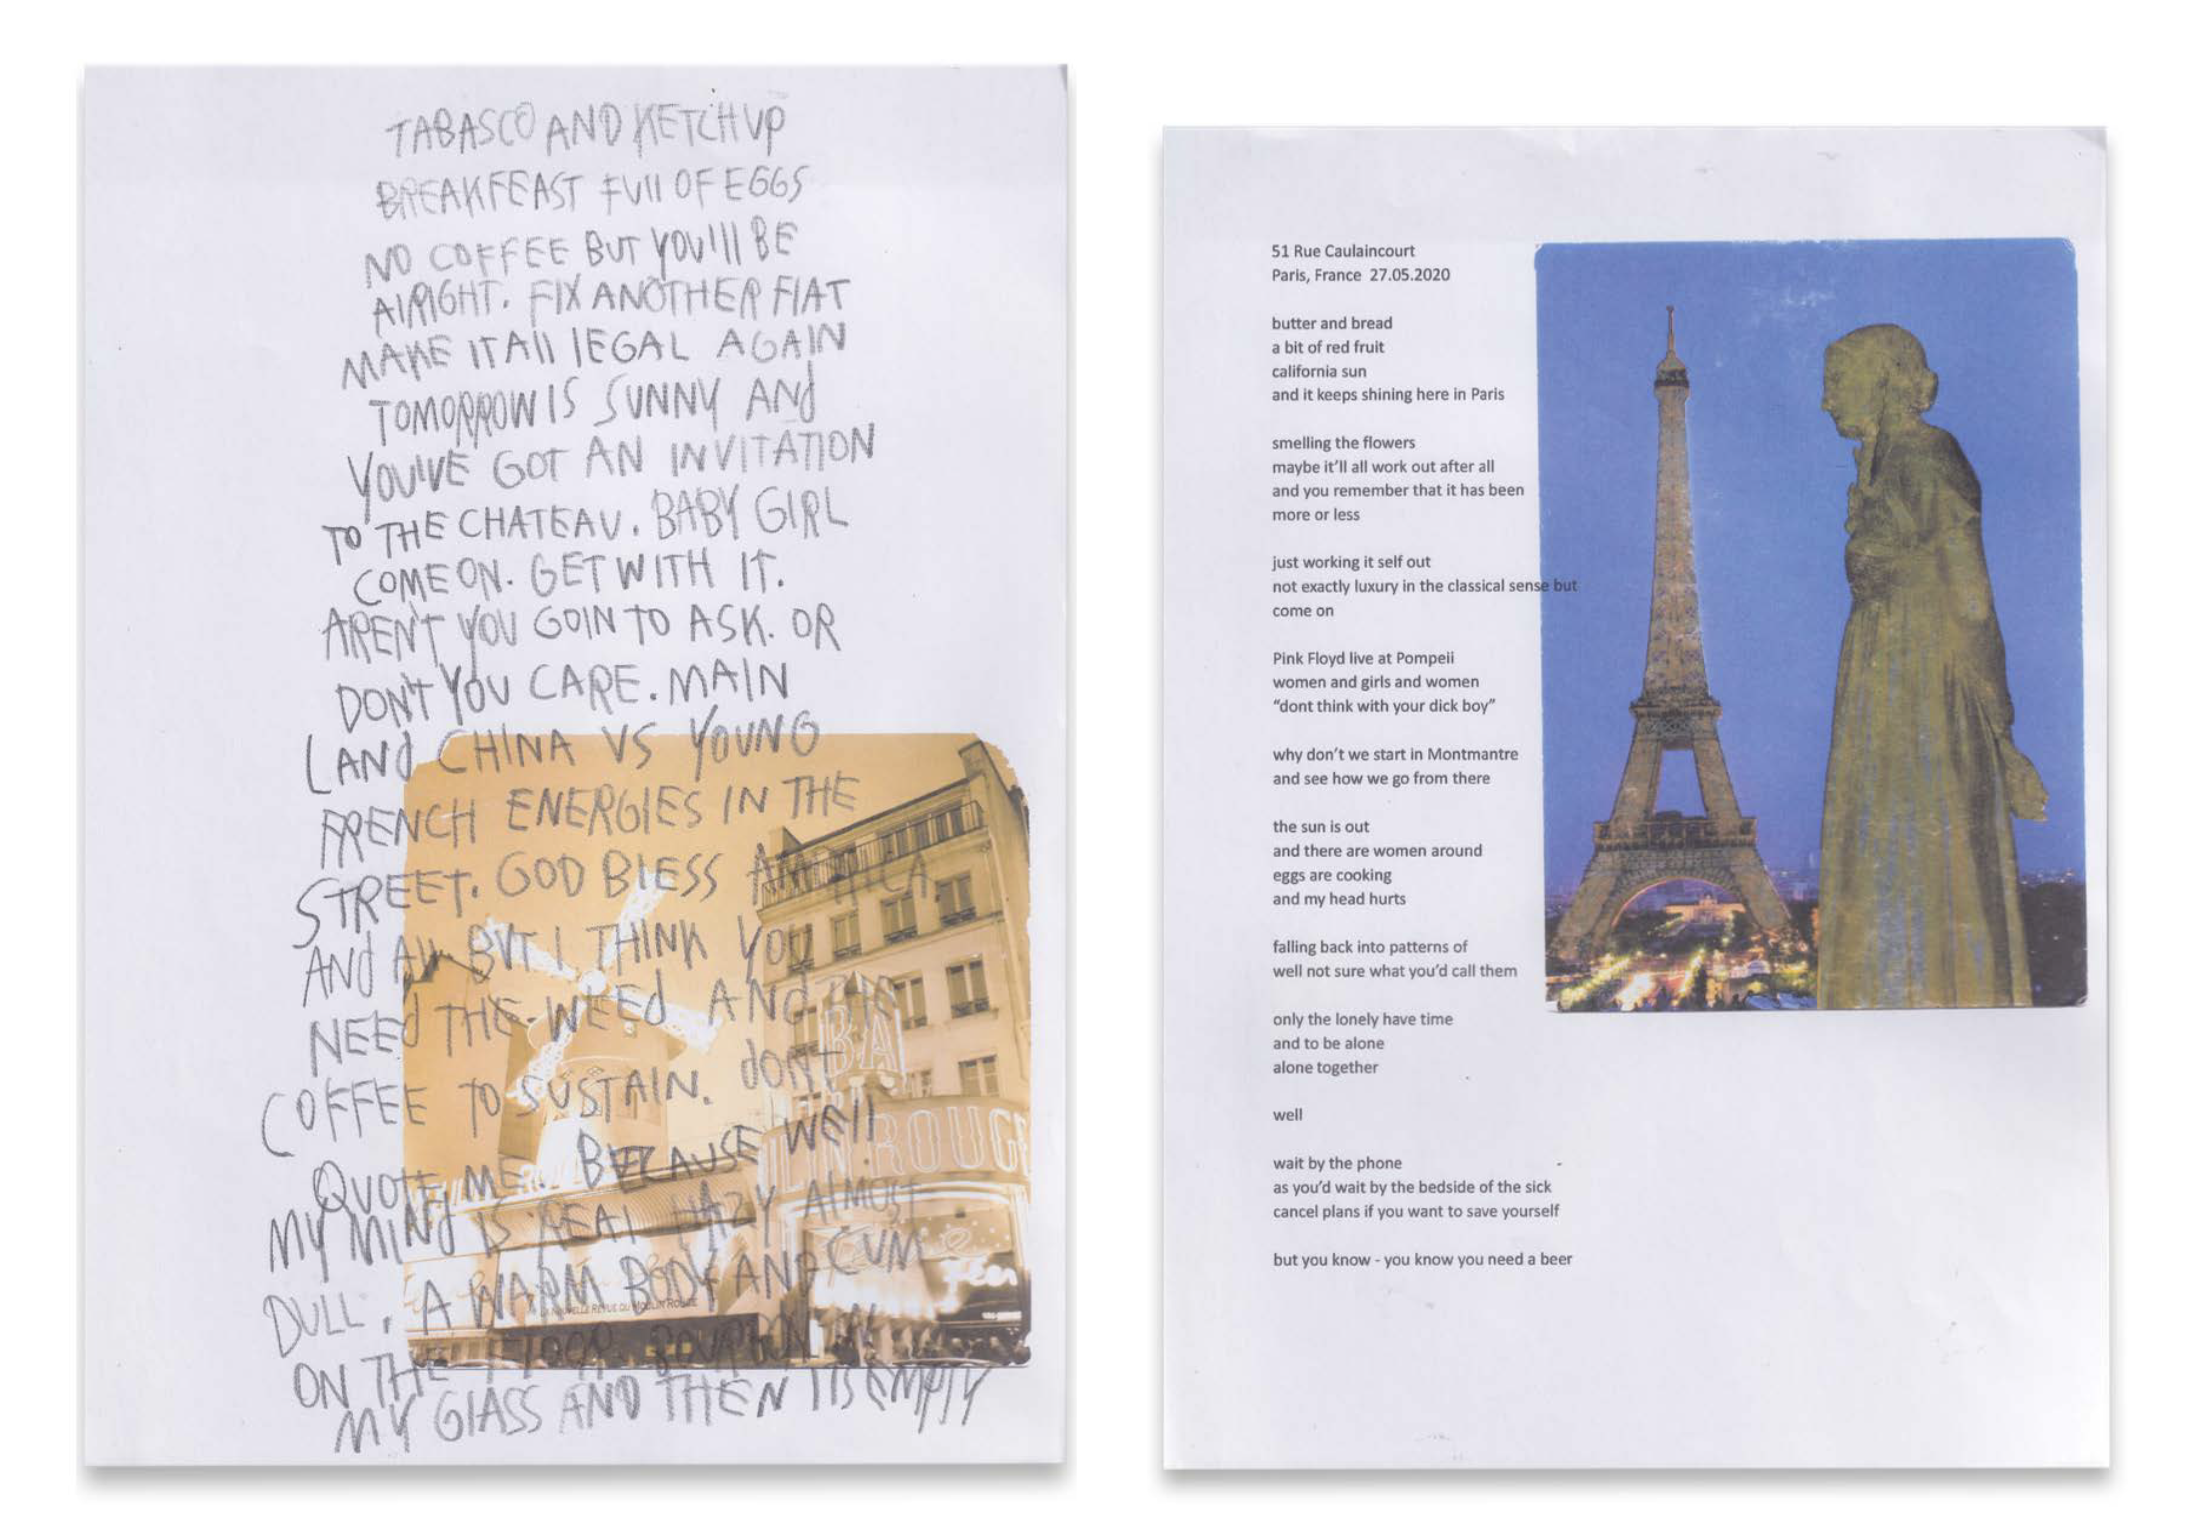 TABASCO AND KETCHUP
BREAKFEAST FUll OF EGGS
NO COFFEE BUT YOU'lll BE
AlRIGHT. FIX ANOTHER FIAT
MAKE IT All lEGAL AGAIN
TOMORROW IS SUNNY AND
YOU'VE GOT AN INVITATION
TO THE CHATEAU. BABY GIRL
COME ON. GET WITH IT.
AREN'T YOU GOIN TO ASK. OR
DON'T YOU CARE. MAIN
LAND CHINA VS YOUNG
FRENCH ENERGIES IN THE
STREET. GOD BlESS AMERICA
AND All BUT I THINK YOU
NEED THE WEED AND THE
COFFEE TO SUSTAIN. dONT
QUOTE ME. BECAUSE WEll
MY MIND IS REAl HAZY AlMOST
DULL. A WARM BODY AND CUM
ON THE FlOOR. BOURBON IN
MY GlASS AND THEN ITS EMPTY
BA
LIN ROUGE
LA NOUVELLE REVUE DU MOULIN ROUGE
51 Rue Caulaincourt
Paris, France 27.05.2020
butter and bread
a bit of red fruit
california sun
and it keeps shining here in Paris
smelling the flowers
maybe it'll all work out after all
and you remember that it has been
more or less
just working it self out
not exactly luxury in the classical sense but
come on
Pink Floyd live at Pompeii
women and girls and women
“dont think with your dick boy”
why don't we start in Montmantre
and see how we go from there
the sun is out
and there are women around
eggs are cooking
and my head hurts
falling back into patterns of
well not sure what you'd call them
only the lonely have time
and to be alone
alone together
well
wait by the phone
as you'd wait by the bedside of the sick
cancel plans if you want to save yourself
but you know - you know you need a beer